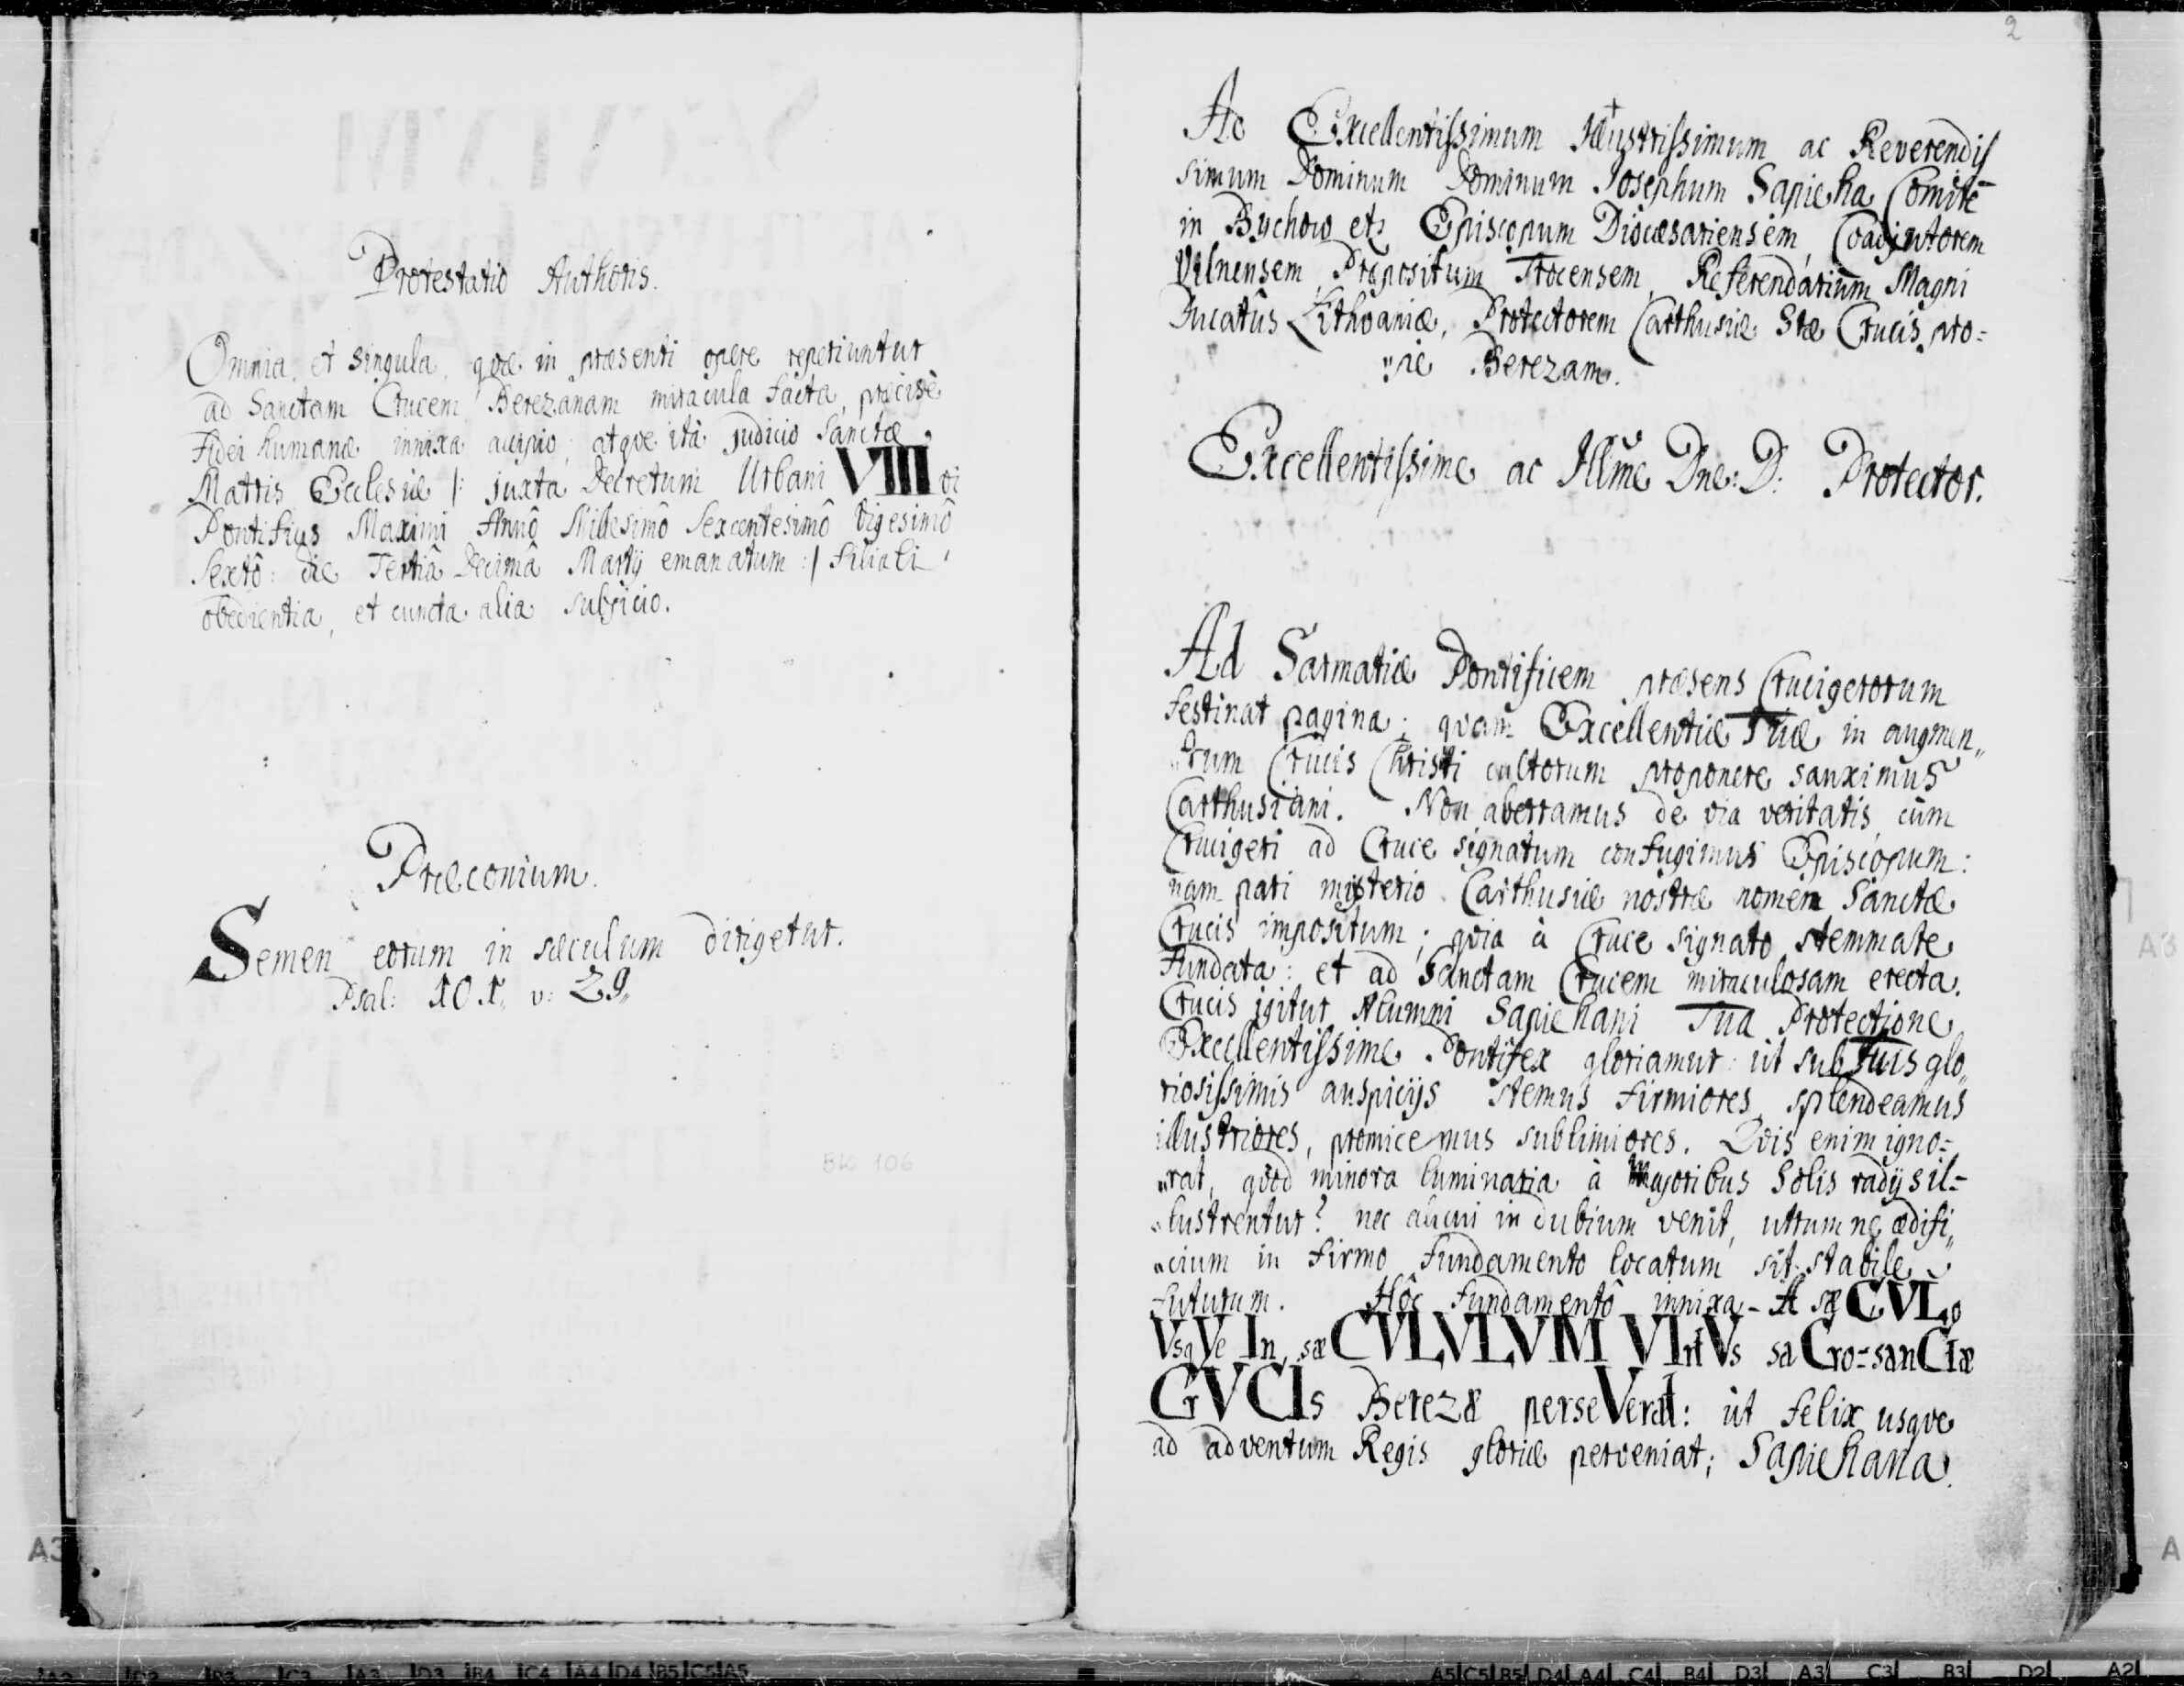 Protestatio Authoris.
Omnia et singula, qvæ in præsenti opere reperiuntur
ad Sanctam Crucem Berezanam miracula facta, præcisè
Fidei humanæ innixa accipio, atqve ità judicio Sanctæ
Matris Ecclesiæ /: juxta Decretum Urbani VIII vi
Pontificis Maximi Annô Millesimô Sexcentesimô Vigesimô
Sextô: die Tertiâ Decimâ Martij emanatum :/ filiali
obedientia, et cuncta alia subjicio.
Præconium.
Semen eorum in sæculum dirigetur.
Psal: 101, v: 29,,
2
Ad Excellentissimum Illustrissimum ac Reverendis
simum Dominum Dominum Josephum Sapieha Comitē
in Bychow etc Episcopum Diocæsariensem, Coadjutorem
Vilnensem, Præpositum Trocensem, Referendarium Magni
Ducatûs Lithvaniæ, Protectorem Carthusiæ Stæ Crucis pro=
"pe Berezam.
Excellentissime ac Illme Dne: D: Protector.
Ad Sarmatiæ Pontificem præsens Crucigerorum
festinat pagina; qvam Excellentiæ Tuæ in augmen"
"tum Crucis Christi cultorum proponere sanximus
Carthusiani. Non aberramus de via veritatis, cùm
Crucigeri ad Cruce signatum confugimus Episcopum:
nam pari misterio Carthusiæ nostræ nomen Sanctæ
Crucis impositum; qvia à Cruce signato stemmate
Fundata: et ad Sanctam Crucem miraculosam erecta.
Crucis igitur Alumni Sapiehani Tua Protectione
Excellentissime Pontifex gloriamur: ut sub Tuis glo"
riosissimis auspicijs stemus firmiores, splendeamus
illustriores, promicemus sublimiores. Qvis enim igno=
"rat, qvòd minora luminaria à Majoribus Solis radijs il=
"lustrentur? nec alicui in dubium venit, utrum ne ædifi"
"cium in firmo fundamento locatum sit stabile
futurum. Hôc Fundamentô innixa- A sæCVLo
VsqVe In sæCVLVLVM VIrtVs saCro=sanCtæ
CrVCIs Berezæ perseVerat: ut felix usqve
ad adventum Regis gloriæ perveniat; Sapiehana